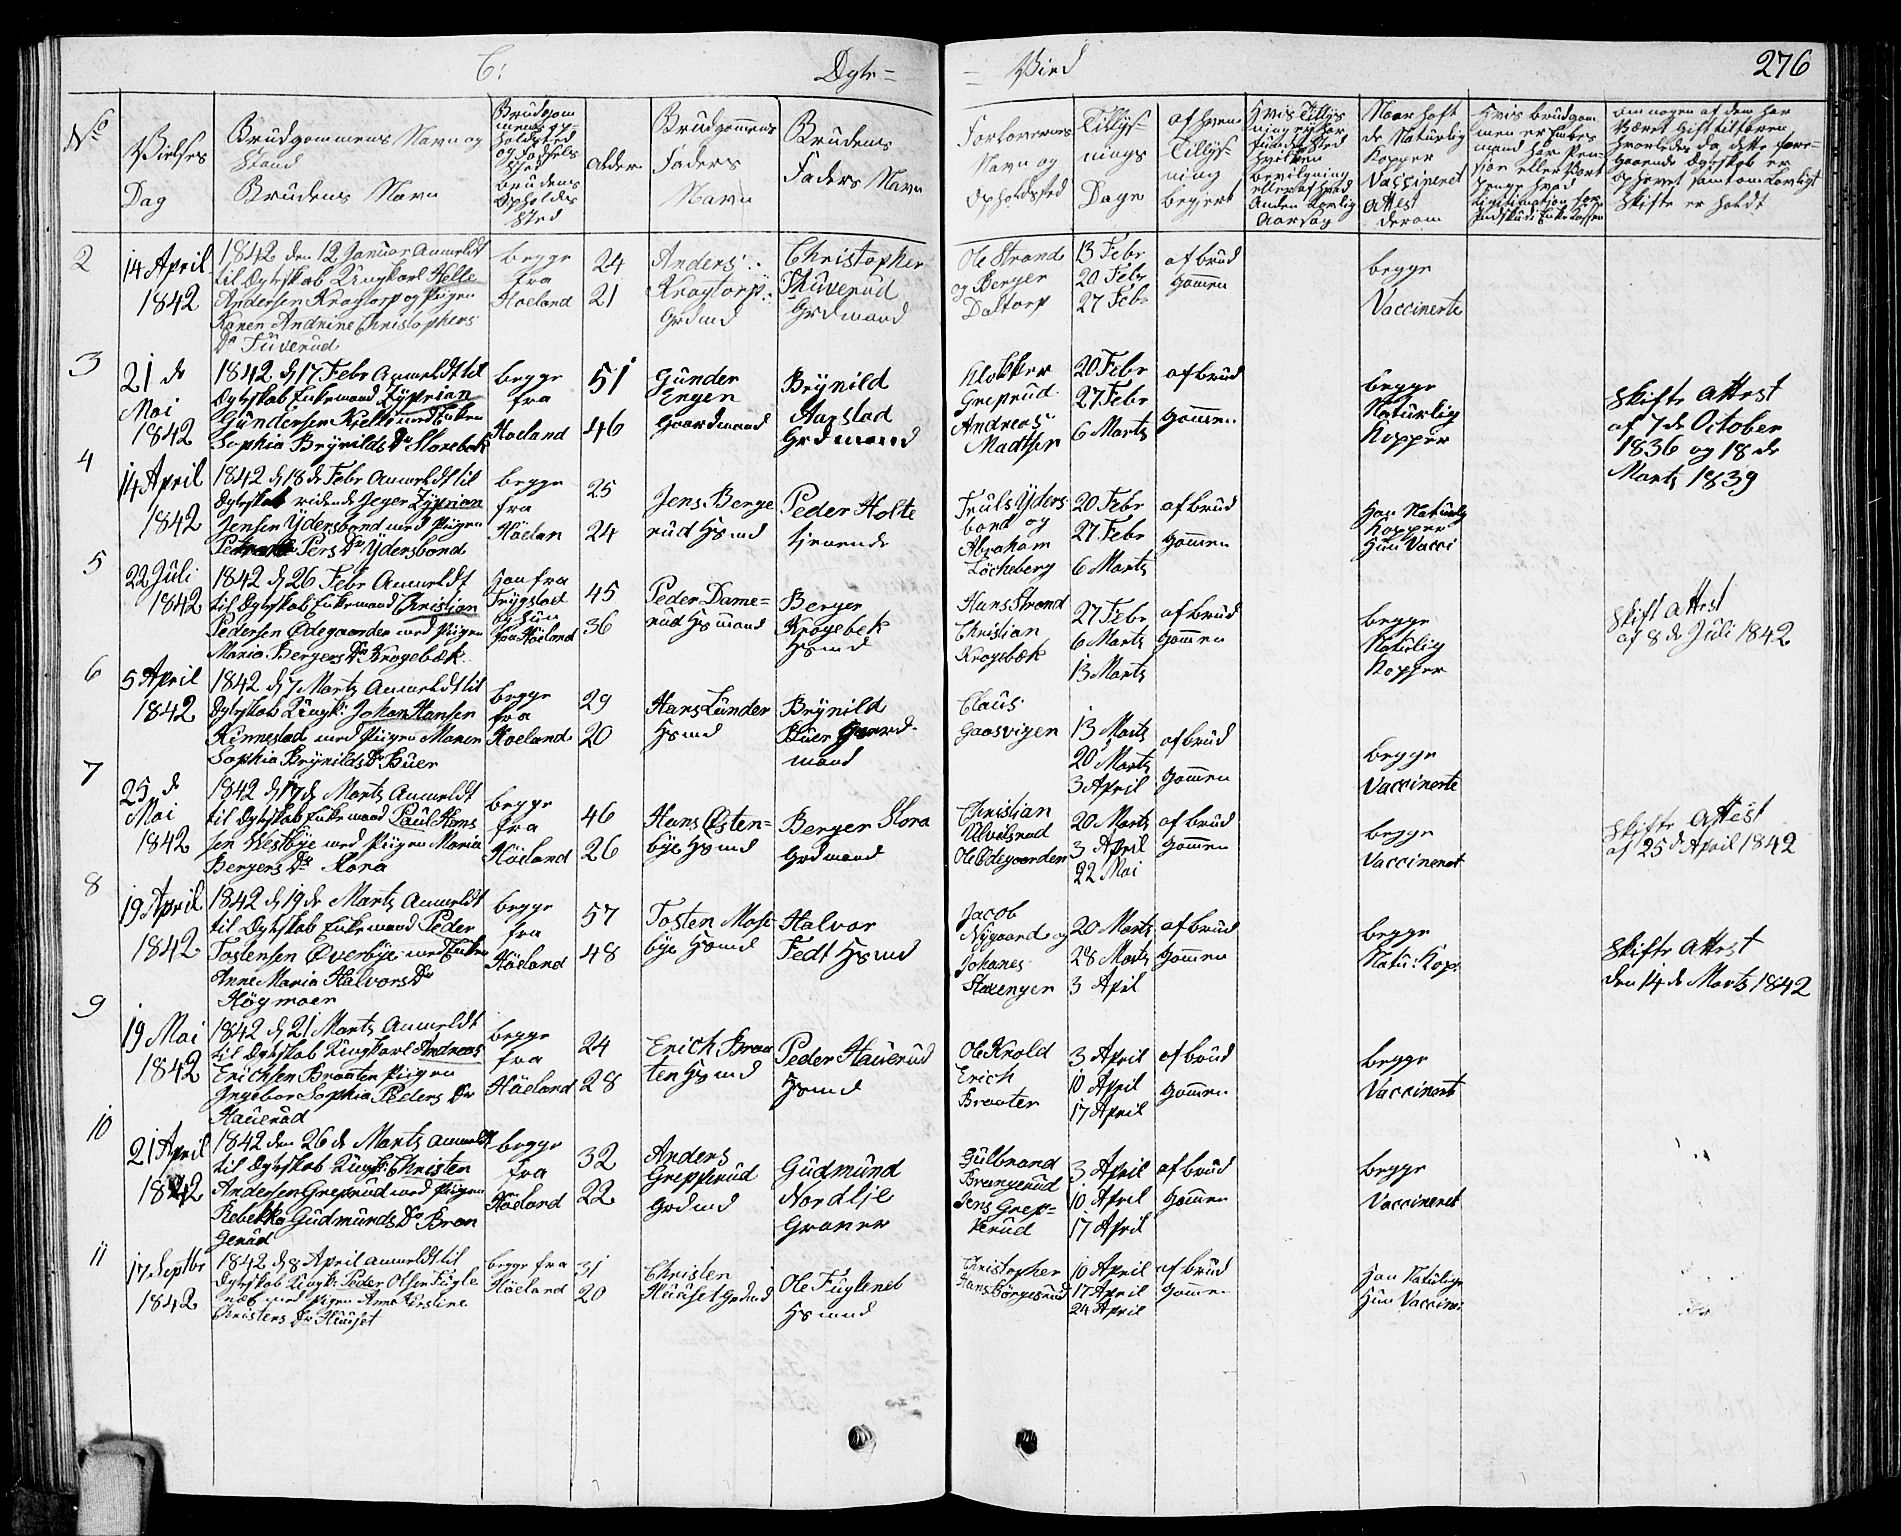 C:
Dgte=
= Vied
276
No
Vielses
Dag
Brudgommens Navn og
Stand
Brudens Navn
Alder
Brudgomens
Faders
Navn
Brudens
Faders Navn
Forlovernes
Navn og
Opholdssted
Tillys-
nings
Dage
af hvem
Tillys-
ning
begert
Naar haft
de Naturlig
Kopper
Vaccineret
Attest
derom
2
14 April
1842
1842 den 12 Januar Anmeldt
til Dgteskab Ungkarl Helle
Andersen Kragtorp og Pigen
Karen Andrine Christophers
Dr Tuverud
begge
fra
Høeland
24
21
Anders
Kragtorp
Grdmd
Christopher
Thuverud
Grdmand
Ole Strand
og Berger
Daltorp
13 Febr
20 Febr
27 Febr
af brud
gommen
begge
Vaccinerte
3
21 de
Mai
1842
1842 d 17 Febr Anmeldt til
Dgteskab Enkemand Zyprian
Gundersen Kielle med Enken
Sophia Brynilds Dr Storebek
begge
fra
Høeland
51
46
Gunder
Engen
Gaardmand
Brynild
Aarstad
Grdmand
Klokker
Greprud
Andreas
Madtsen
20 Febr
27 Febr
6 Martz
af brud
gommen
begge
Naturlig
Kopper
Skifte Attest
af 7 de October
1836 og 18 de
Martz 1839
4
14 April
1842
1842 d 18 de Febr Anmeldt til
Dgteskab ridende Jeger Zyprian
Jensen Ydersbond med Pigen
Pers Dr Ydersbond
begge
fra
Høelan
25
24
Jens Berge
rud Hsmd
Peder Holte
tjenende
Truls Yders
bond og
Abraham
Løcheberg
20 Febr
27 Febr
6 Martz
af brud
gommen
Han Naturlig
Kopper
Hun Vacci
5
22 Juli
1842
1842 d 26 Febr Anmeldt
til Dgteskab Enkemand Christian
Pedersen Ødegaarden med Pigen
Maria Bergers Dr Kragebæk
Han fra
Trygstad
og hun
fra Høeland
45
36
Peder Dame=
rud Hsmand
Berger
Kragebek
Hsmd
Hans Strand
Christian
Kragebæk
27 Febr
6 Martz
13 Martz
af brud
gommen
begge
Naturlig
Kopper
Skift Attest
af 8 de Juli 1842
6
5 April
1842
1842 d 7 Martz Anmeldt til
Dgteskab Ungk: Johan Hansen
Kinnestad med Pigen Maren
Sophia Brynilds Dr Buer
begge
fra
Høeland
29
20
Hans Lunder
Hsmd
Brynild
Buer Gaard-
mand
Claus
Gaasvigen
13 Martz
20 Martz
3 April
af brud
gommen
begge
Vaccinerte
7
25 de
Mai
1842
1842 d 17 de Martz Anmeldt
til Dgteskab Enkemand Paul Hans
sen Westbye med Pigen Maria
Bergers Dr Rora
begge
fra
Høeland
46
26
Hans Østen=
bye Hsmd
Berger Slora
Grdmand
Christian
Ulvelsrud
Ole Ødegaarden
20 Martz
3 April
22 Mai
af brud
gommen
begge
Vaccineret
Skifte Attest
af 25 d April 1842
8
19 April
1842
1842 d 19 de Martz Anmeldt
til Dgteskab Enkemand Peder
Tostensen Øverbye med Enken
Anne Maria Halvors Dr
Høgmoen
begge
fra
Høeland
57
48
Tosten Mose
bye Hsmd
Halvor
Fedt Hsmd
Jacob
Nygaard og
Johanes
Stavengen
20 Martz
28 Martz
3 April
af brud
gommen
begge
Natu: Kop:
Skifte Attest
den 14 de Martz 1842
9
19 Mai
1842
1842 d 21 Martz Anmeldt
til Dgteskab Ungkarl Andreas
Erichsen Braaten Pigen
Ingebor Sophia Peders Dr
Hauerud
begge
fra
Høeland
24
28
Erich Braa
ten Hsmd
Peder Hauerud
Hsmd
Ole Knold
Erich
Braaten
3 April
10 April
17 April
af brud
gommen
begge
Vaccineret
10
21 April
1842
1842 den 26 de Martz Anmeldt
til Dgteskab Ungk: Christen
Andersen Greprud med Pigen
Rebekka Gudmunds Dr Bran
gerud
begge
fra
Høeland
32
22
Anders
Grepperud
Grdmd
Gudmund
Nordlie
Graner
Gulbrand
Brangerud
Jens Grep=
perud
3 April
10 April
17 April
af brud
gommen
begge
Vaccineret
11
17 Septbr
1842
1842 d 8 April anmeldt til
Dgteskab Ungk: Peder Olsen Fugle
næb med Pigen Anne Kirstine
Christens Dr Huuset
begge fra
Høeland
31
20
Christen
Huuset Grdmd
Ole Fugleneb
Hsmd
Christopher
Hans Børgesrud
10 April
17 April
24 April
af brud
gommen
Han Naturlige
Hun Vaccine: